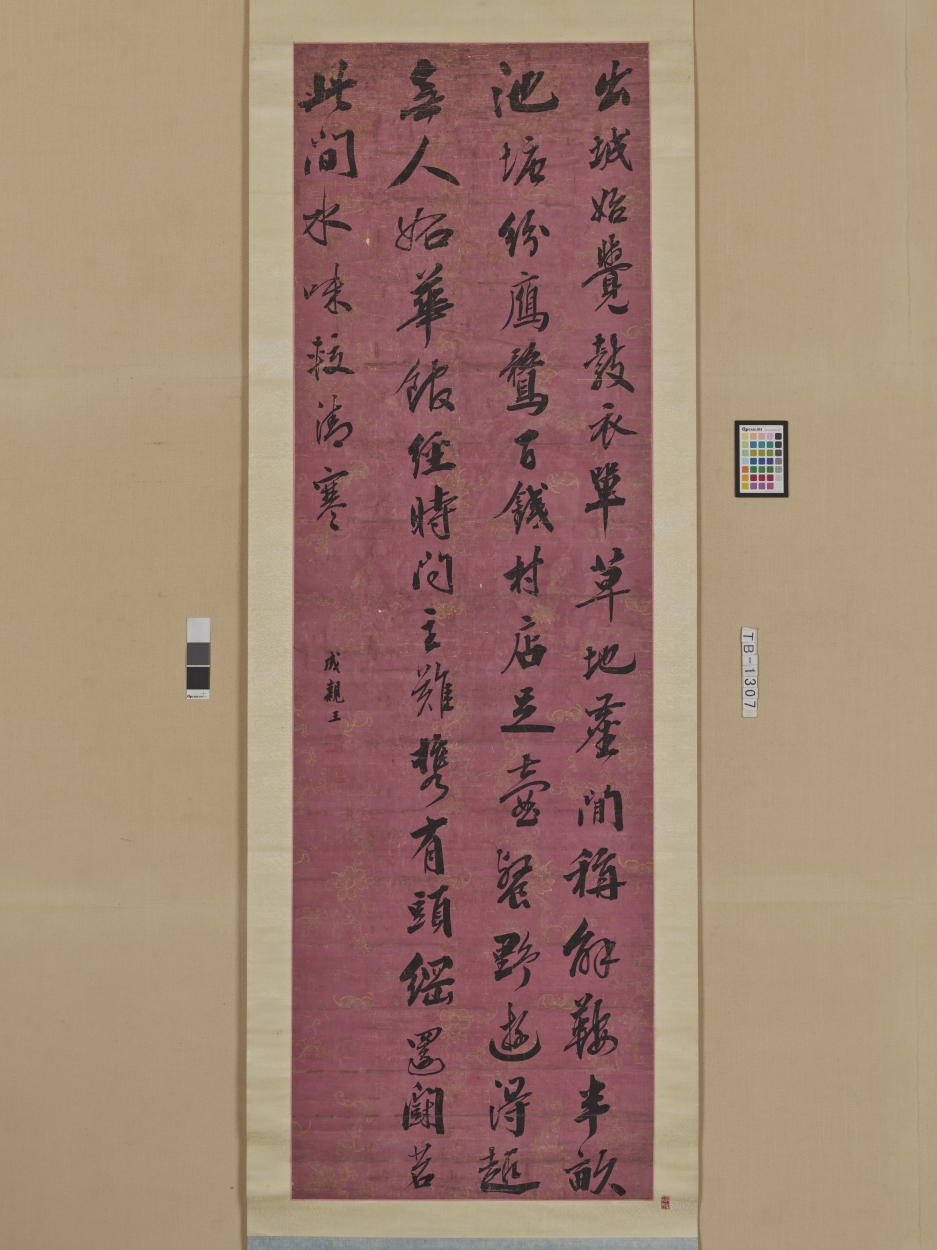 出城始覺縠衣單草地塵閒稱解鞍半畝
池塘紛鴈鶩百錢村店足壺餐野遊得趣
無人妬華館經時問主難攜有頭綱還鬬茗
此間水味較清寒
成親王
TB-1307